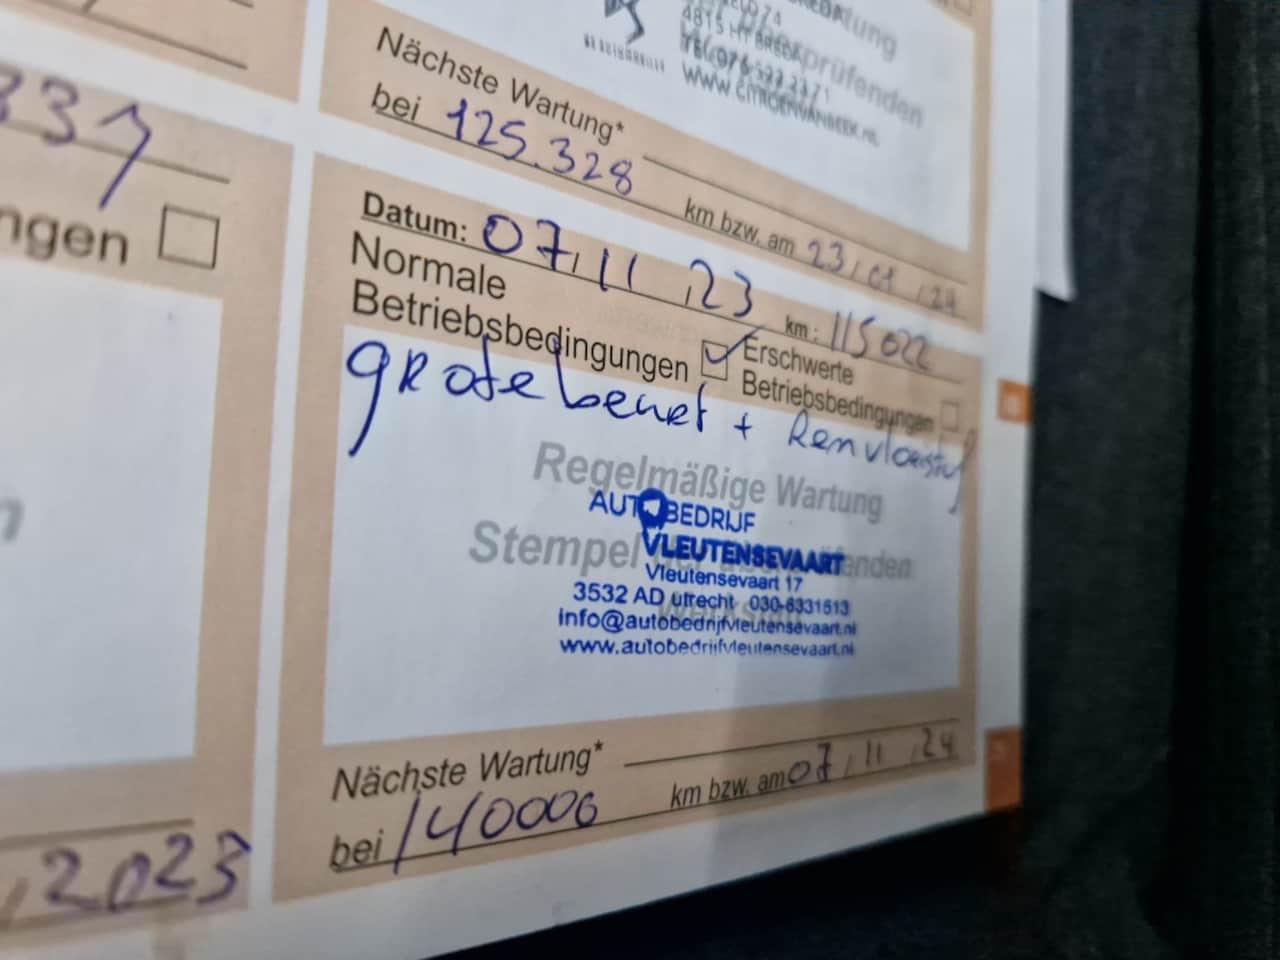 4815 HT BREDA
WWW.CITROENVANBEEK.NL
prüfenden
Nächste Wartung*
bei 125.328 km bzw. am 23/01/24
337
ngen
Datum: 07/11/23 km: 115022
Normale
Betriebsbedingungen
Erschwerte
Betriebsbedingungen
grote beurt + Remvloeistof
Regelmäßige Wartung
AUTOBEDRIJF
VLEUTENSEVAART
Stempel der überprüfenden
Vleutensevaart 17
3532 AD Utrecht 030-6331613
Werkstatt
info@autobedrijfvleutensevaart.nl
www.autobedrijfvleutensevaart.nl
Nächste Wartung*
bei 140000 km bzw. am 07/11/24
2023